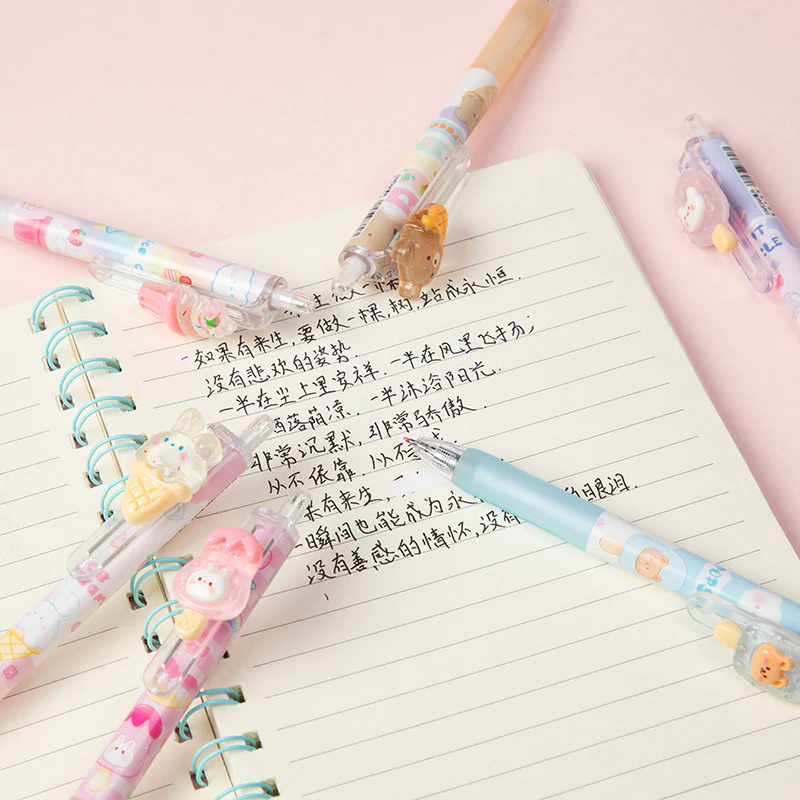 来生 一棵
如果有来生,要做一棵,树,站成永恒.
没有悲欢的姿势.
一半在尘土里安祥.一半在风里飞扬;
洒落荫凉.一半沐浴阳光.
非常沉默,非常骄傲.
从不依靠,从
有来生,
一瞬间也能成为永 的眼泪.
没有善感的情怀,没有